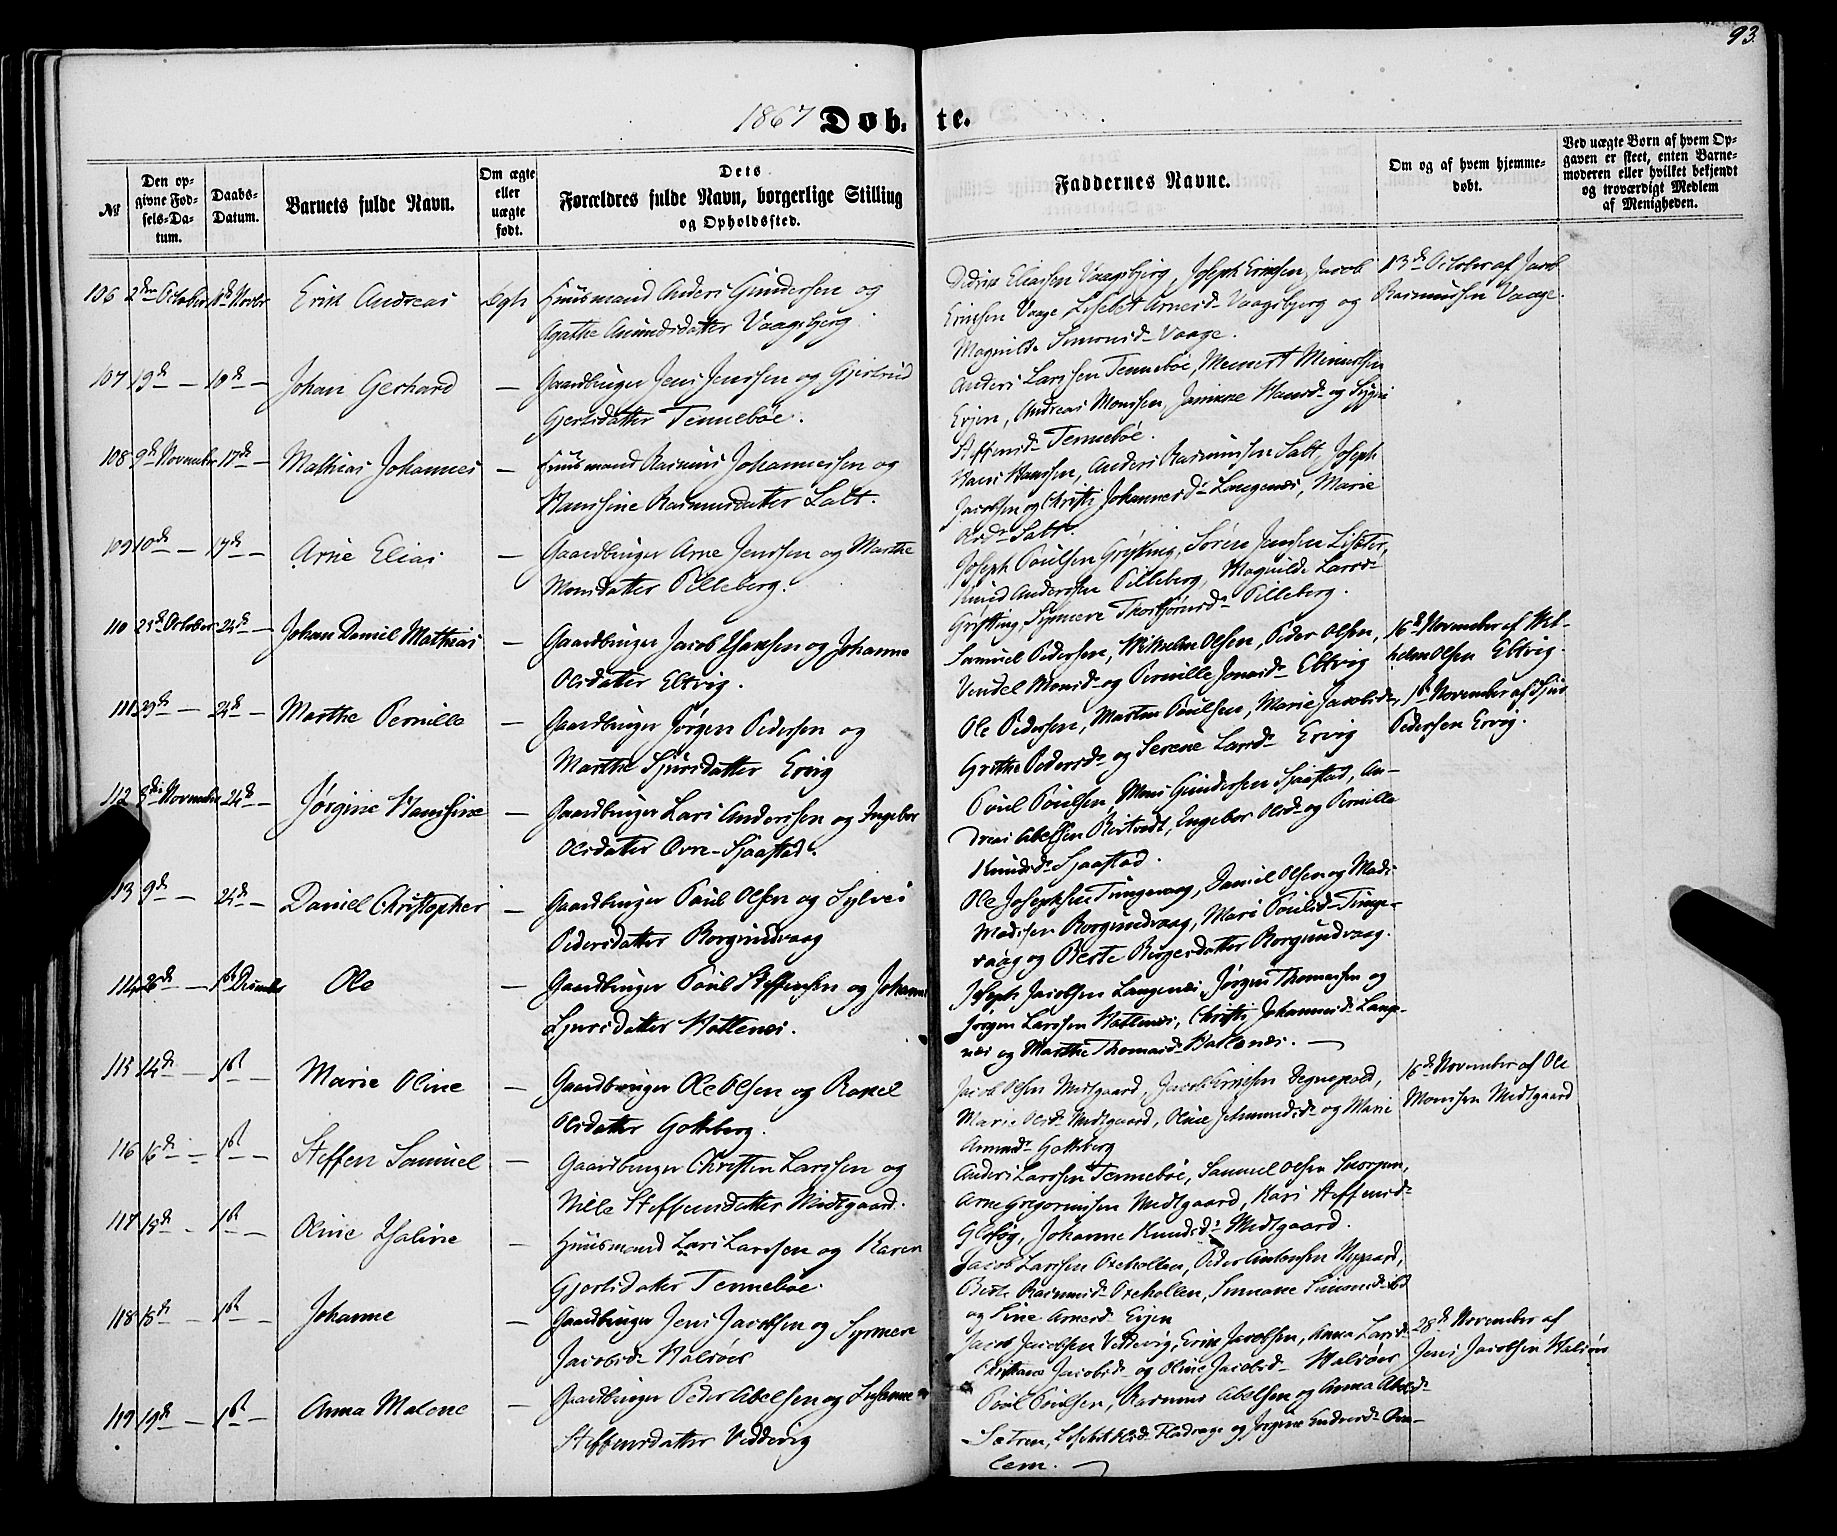 93.
1867 Døb- te.
№
Den op-
givne Fød-
sels-Da-
tum.
Daabs-
Datum.
Barnets fulde Navn.
Om ægte
eller
uægte
født.
Dets
Forældres fulde Navn, borgerlige Stilling
og Opholdssted.
Faddernes Navne.
Om og af hvem hjemme-
døbt.
Ved uægte Børn af hvem Op-
gaven er skeet, enten Barne-
moderen eller hvilket bekjendt
og troværdigt Medlem
af Menigheden.
106 2den October 10de Novbr Erik Andreas Ægte Huusmand Anders Gundersen og
Agathe Amundsdatter Vaagsbjerg.
Didrik Eliassen Vaagsbjerg, Joseph Ericksen, Jacob
Ericksen Vaage Lisebet Arnesd. Vaagsbjerg og
Magnilde Simonsd. Vaage.
13de October af Jacob
Rasmussen Vaage.
107 19de — 10de — Johan Gerhard — Gaardbruger Jens Jenssen og Gjertrud
Gjertsdatter Tennebøe.
Anders Larssen Tennebøe, Meinert
Erjen, Andreas Monssen, Hansd. og
Steffensd. Tennebøe.
108 9de November 17de — Mathias Johannes — Huusmand Rasmus Johannessen og
Hanssine Rasmusdatter Salt.
Hans Hanssen, Anders Rasmussen Salt, Joseph
Jacobsen og Christi Johannesd. Langenæs, Marie
Olsd. Salt.
109 10de — 17de — Arne Elias — Gaardbruger Arne Jenssen og Marthe
Monsdatter Pilleberg.
Joseph Poulsen Grytting, Søren Jensen Lisæter,
Knud Anderssen Pilleberg, Magnilde Larsd.
Grytting, Synneve Thorbjørnsd. Pilleberg.
110 23de October 24de — Johan Daniel Mathias — Gaardbruger Jacob Hanssen og Johanne
Olsdatter Eltvig.
Samuel Pedersen, Wilhelm Olsen, Peder Olsen,
Vendel Monsd. og Pernille Jonasd. Eltvig
16de November af Wil-
helm Olsen Eltvig.
111 29de — 24de — Marthe Pernille — Gaardbruger Jørgen Pedersen og
Marthe Sjursdatter Ervig
Ole Pedersen, Morten Poulsen, Marie Jacobsd.,
Grethe Pedersd. og Serene Larsd. Ervig
1ste November af Sjur
Pedersen Ervig.
112 8de November 24de — Jørgine Hanssine — Gaardbruger Lars Anderssen og Ingebor
Olsdatter Øvre-Sjaastad.
Poul Poulsen, Mons Gundersen Sjaastad, An-
dreas Abelssen Ristvedt, Engebor Olsd. og Pernille
Knudsd. Sjaastad.
113 9de — 24de — Daniel Christopher — Gaardbruger Poul Olsen og Sylvei
Pedersdatter Borgundvaag
Ole Josephsen Tungevaag, Daniel Olsen og Mads
Madssen Borgundvaag, Mari Poulsd. Tunge-
vaag og Berte Børgesdatter Borgundvaag.
114 26de — 1ste December Ole — Gaardbruger Poul Steffenssen og Johanne
Sjursdatter Hatlenæs.
Joseph Jacobsen Langenæs, Jørgen Thomassen og
Jørgen Larssen Hatlenæs, Christi Johannesd. Lange-
næs og Marthe Thomasd. Hatlenæs. —
115 14de — 1ste — Marie Oline — Gaardbruger Ole Olsen og Rakel
Olsdatter Gotteberg.
Jacob Olsen Midtgaard, Jacob Ericksen Degnepold,
Marie Olsd. Midtgaard, Oline og Marie
Amundsd. Gotteberg
16de November af Ole
Monssen Midtgaard
116 16de — 1ste — Steffen Samuel — Gaardbruger Christen Larssen og
Nille Steffensdatter Midtgaard.
Anders Larssen Tennebøe, Samuel Olsen Skorpen,
Arne Gregoriussen Midtgaard, Kari Steffensd.
Johanne Knudsd. Midtgaard.
117 18de — 1ste — Oline Haline — Huusmand Lars Larssen og Karen
Gjertsdatter Tennebøe.
Jacob Larssen Oxehollen, Peder Nygaard,
Berte Rasmusd. Oxehollen, Simonsd.
og Sine Arnesd. Erjen
118 18de — 1ste — Johanne — Gaardbruger Jens Jacobsen og Synneve
Jacobsd. Halsøer
Jacob Jacobsen Vedvig, Erick Jacobsen, Anna Larsd.
Jacobsd. og Oline Jacobsd. Halsøer
28de November af
Jens Jacobsen Halsøer
119 19de — 1ste — Anna Malene — Gaardbruger Peder Abelsen og Susanne
Steffensdatter Vedvig
Poul Poulsen, Rasmus Abelsen og Anna Abelsd.
Sætren, Lisebet Olsd. Fladrage og Jørgine
lem. —